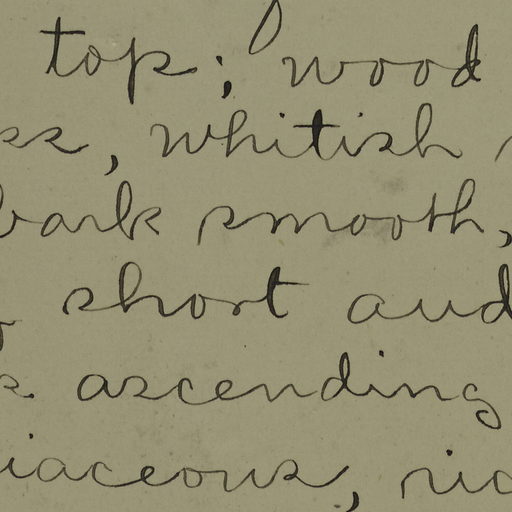 top; wood
, whitish
bark smooth,
short and
ascending
iaceous,